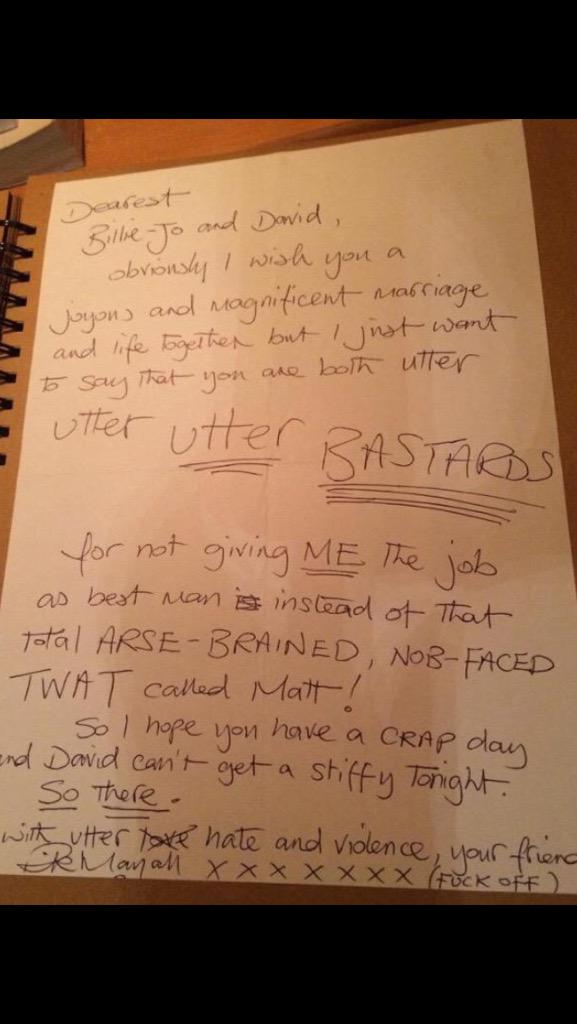 Dearest
Billie-Jo and David,
obviously I wish you a
joyous and magnificent marriage
and life together but I just want
to say that you are both utter
utter utter BASTARDS
for not giving ME the job
as best man instead of that
total ARSE-BRAINED, NOB-FACED
TWAT called Matt!
So I hope you have a CRAP day
and David can't get a stiffy tonight.
So there.
with utter love hate and violence, your friend
Rik Mayall x x x x x x x (FUCK OFF)